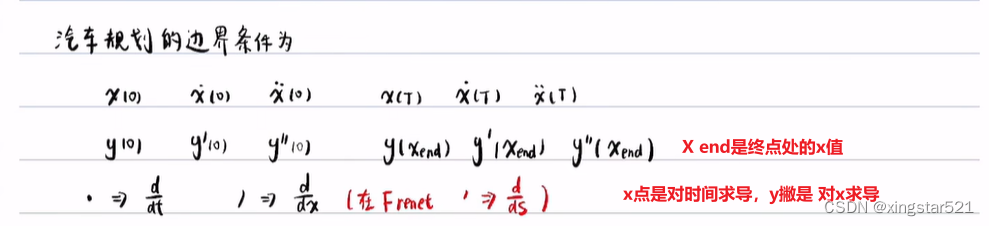 汽车规划的边界条件为
x(0) ẋ(0) ẍ(0) x(T) ẋ(T) ẍ(T)
y(0) y'(0) y''(0) y(xend) y'(xend) y''(xend) X end是终点处的x值
· ⇒ d/dt ′ ⇒ d/dx (在Frenet ′ ⇒ d/ds) x点是对时间求导，y撇是 对x求导
CSDN @xingstar521